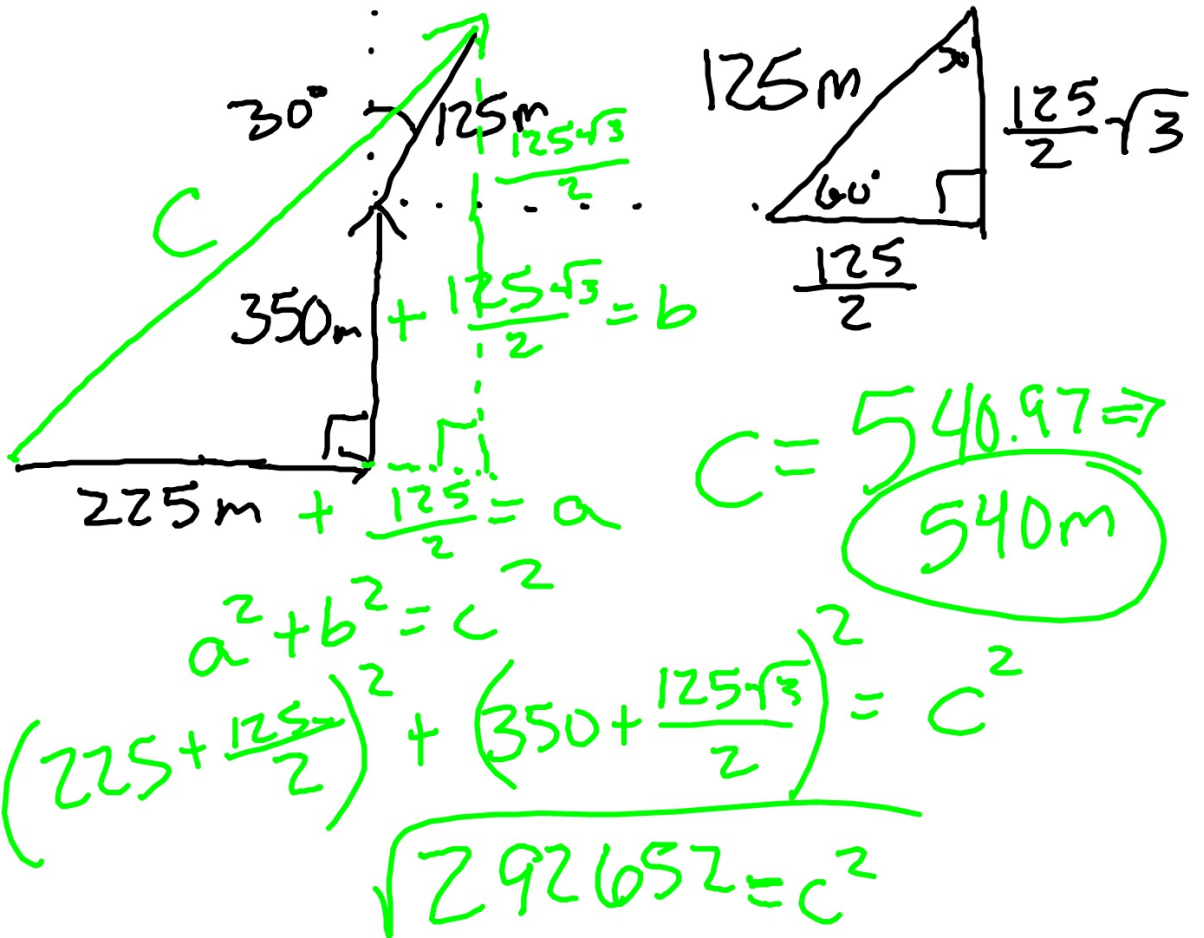 30°
125m
125√3/2
C
350m + 125√3/2 = b
225m + 125/2 = a
125m
30
60°
125/2 √3
125/2
C = 540.97 ⇒
540m
a² + b² = c²
(225 + 125/2)² + (350 + 125√3/2)² = c²
√292652 = c²